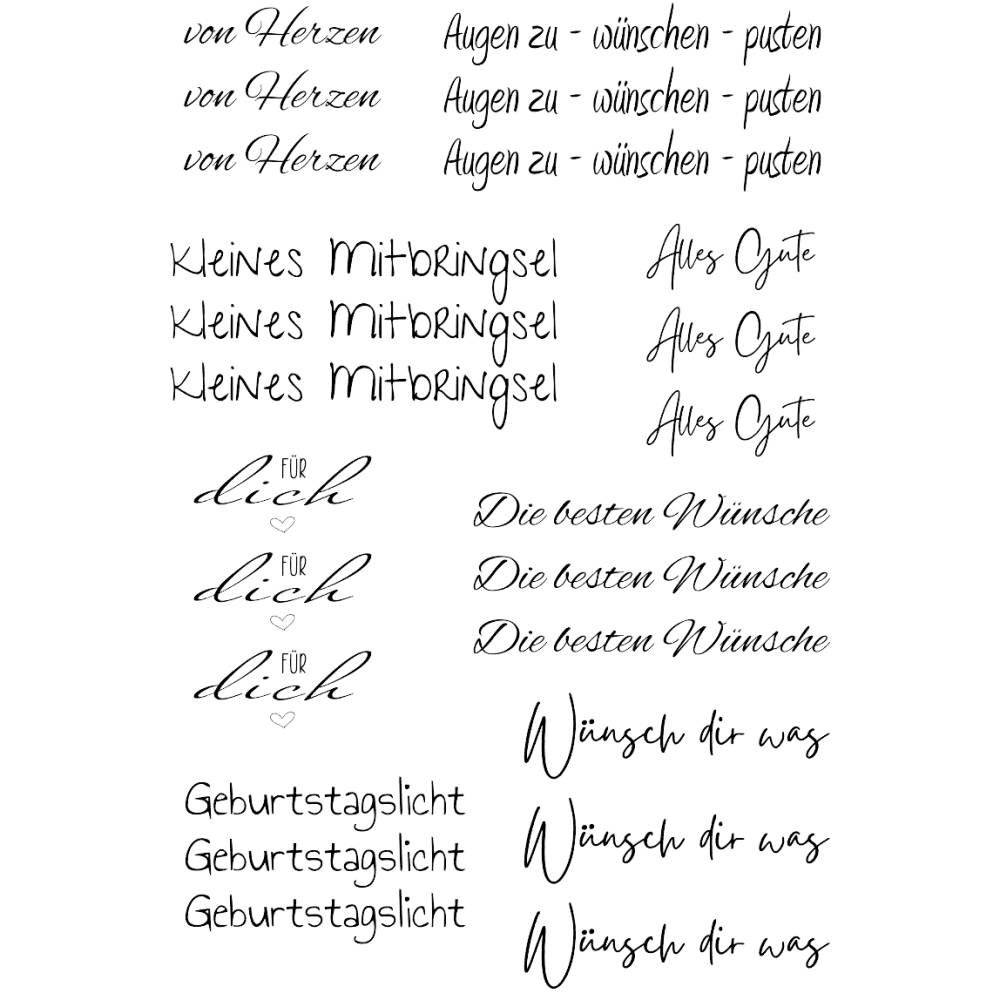 von Herzen
von Herzen
von Herzen
Augen zu - wünschen - pusten
Augen zu - wünschen - pusten
Augen zu - wünschen - pusten
Kleines Mitbringsel
Kleines Mitbringsel
Kleines Mitbringsel
Alles Gute
Alles Gute
Alles Gute
FÜR
dich
FÜR
dich
FÜR
dich
Die besten Wünsche
Die besten Wünsche
Die besten Wünsche
Geburtstagslicht
Geburtstagslicht
Geburtstagslicht
Wünsch dir was
Wünsch dir was
Wünsch dir was